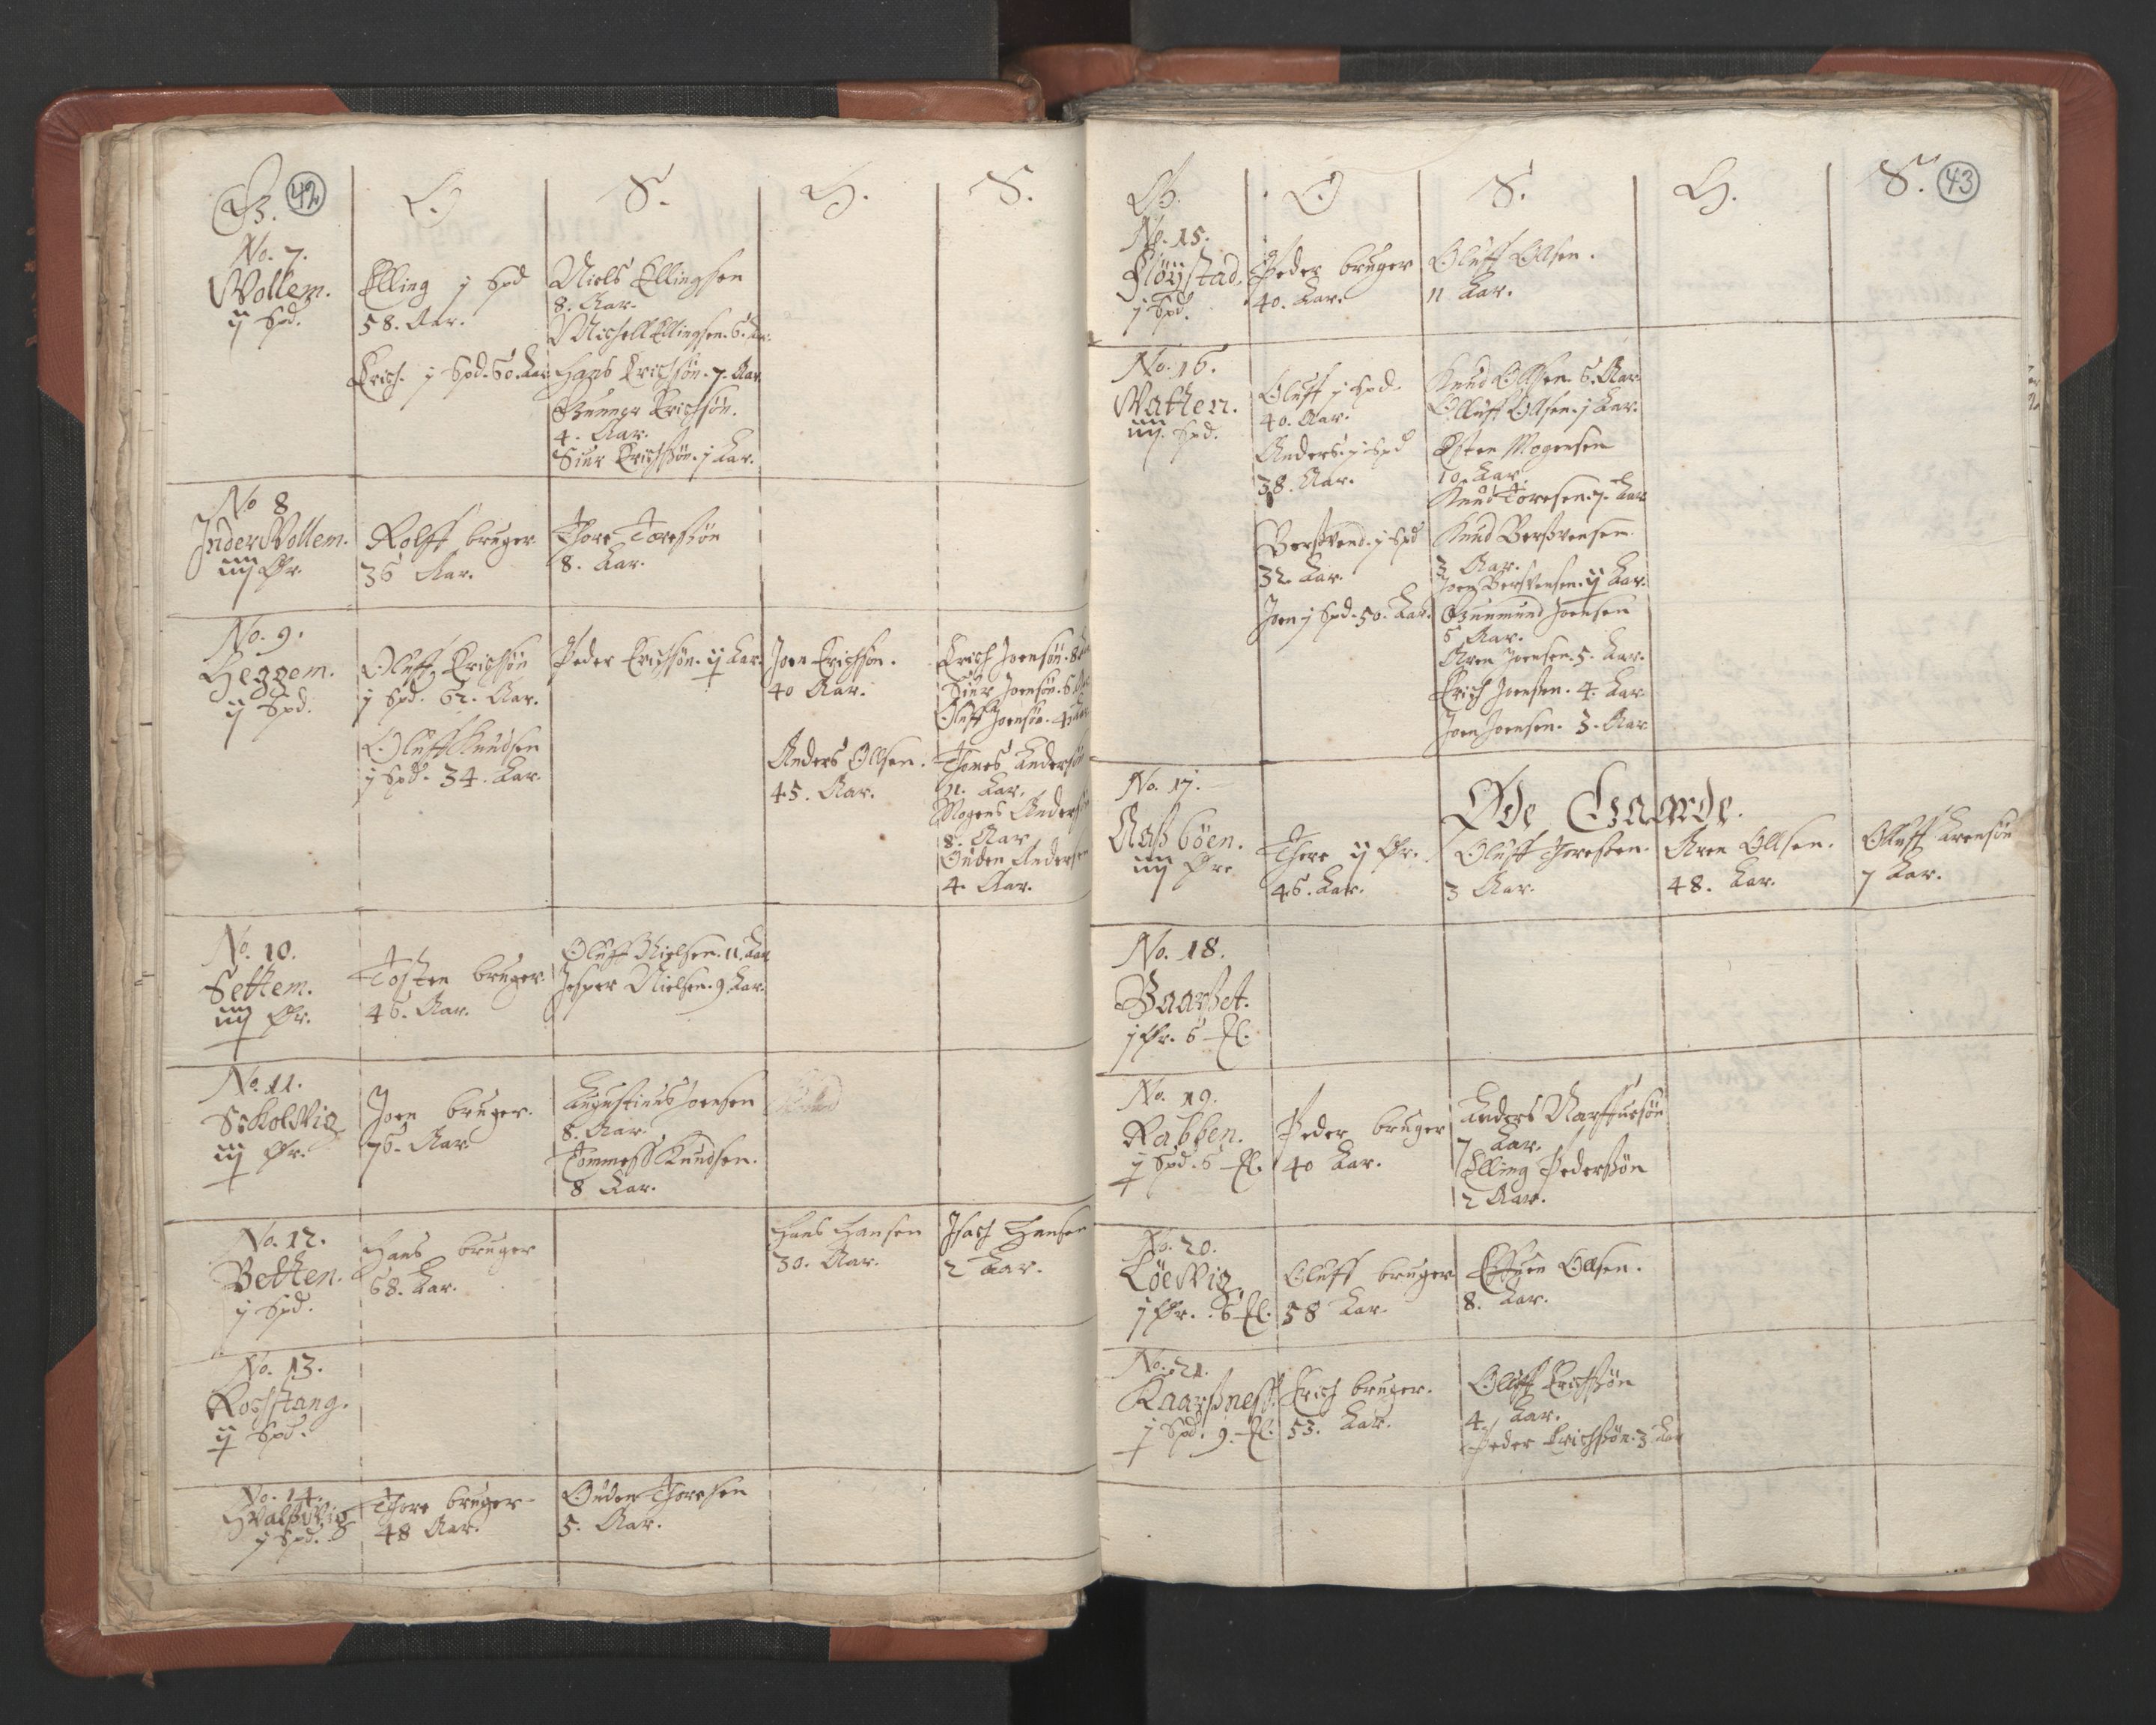 G. 42 O S. H. S.
No. 7.
Wollem.
ij Spd.
Elling j Spd
58. Aar.
Erich j Spd. 50. Aar
Niels Ellingsen
8. Aar.
Michell Ellingsen. 6. Aar.
Hans Erichsøn. 7. Aar
Gunner Erichsøn.
4. Aar.
Siur Erichsøn. j Aar.
No 8
Inder Wollem.
iiij Ør.
Rolff bruger
36 Aar.
Thore Toresøn
8. Aar.
No. 9.
Heggem.
ij Spd.
Oluff Erichsøn
j Spd. 62. Aar.
Oluff Knudsen
j Spd. 34. Aar.
Peder Erichsøn. ij Aar.
Joen Erichsøn.
40 Aar.
Anders Ollsen.
45. Aar.
Erich Joensøn. 8
Siur Joensøn. 6
Oluff Joensøn. 4
Thomes Andersøn
11. Aar.
Mogens Andersøn
8. Aar
Ouden Andersen
4. Aar.
No. 10.
Settem.
iiij Ør.
Tosten bruger
46. Aar.
Oluff Nielsen. 11. Aar
Jesper Nielsen. 9. Aar.
No. 11.
Scholvig
iij Ør.
Joen bruger.
76. Aar
Augustinus Joensen
8. Aar.
Tommess Knudsen.
8 Aar.
No. 12.
Betten.
j Spd.
Hans bruger
68. Aar.
Hans Hansen
30. Aar.
Isach Hansen
2 Aar.
No. 13.
Rosstang.
ij Spd.
No. 14.
Hvalsvig
j Spd.
Thore bruger
48 Aar.
Ouden Thoresen
5. Aar.
G. O S. H. S. 43
No. 15.
Fløystad.
j Spd.
Peder bruger
40. Aar.
Oluff Ollsen.
11 Aar.
No. 16.
Watten.
iiij. Spd.
Oluff j Spd.
40. Aar.
Anders. j Spd
38. Aar.
Bersvend. j Spd
32. Aar.
Joen j Spd. 50. Aar.
Knud Ollsen. 6. Aar
Olluff Ollsen. j Aar.
Østen Mogensen
10. Aar.
Knud Toresen. 7. Aar
Knud Bersvensen.
3 Aar.
Joen Bersvensen. ij Aar.
Gunmund Joensen
6 Aar.
Aren Joensen. 5. Aar.
Erich Joensen. 4. Aar
Joen Joensen. 3. Aar
Øde Gaarde.
No. 17.
Aasbøen.
iiij Øre
Thore ij Ør.
46. Aar.
Oluff Thoresen.
3 Aar.
Aren Ollsen.
48. Aar.
Olluff Arensøn
7 Aar.
No. 18.
Baarset.
j Ør. 6
No. 19.
Rabben.
j Spd. 6
Peder bruger
40 Aar.
Anders Narffuesøn
7 Aar.
Elling Pedersøn
2 Aar.
No. 20.
Løevig
j Ør. 6
Oluff bruger
58 Aar.
Effuen Ollsen.
8. Aar.
No. 21.
Kaarsness.
j Spd. 9.
Erich bruger.
53. Aar.
Oluff Erichsøn
4. Aar.
Peder Erichsøn. 3 Aar